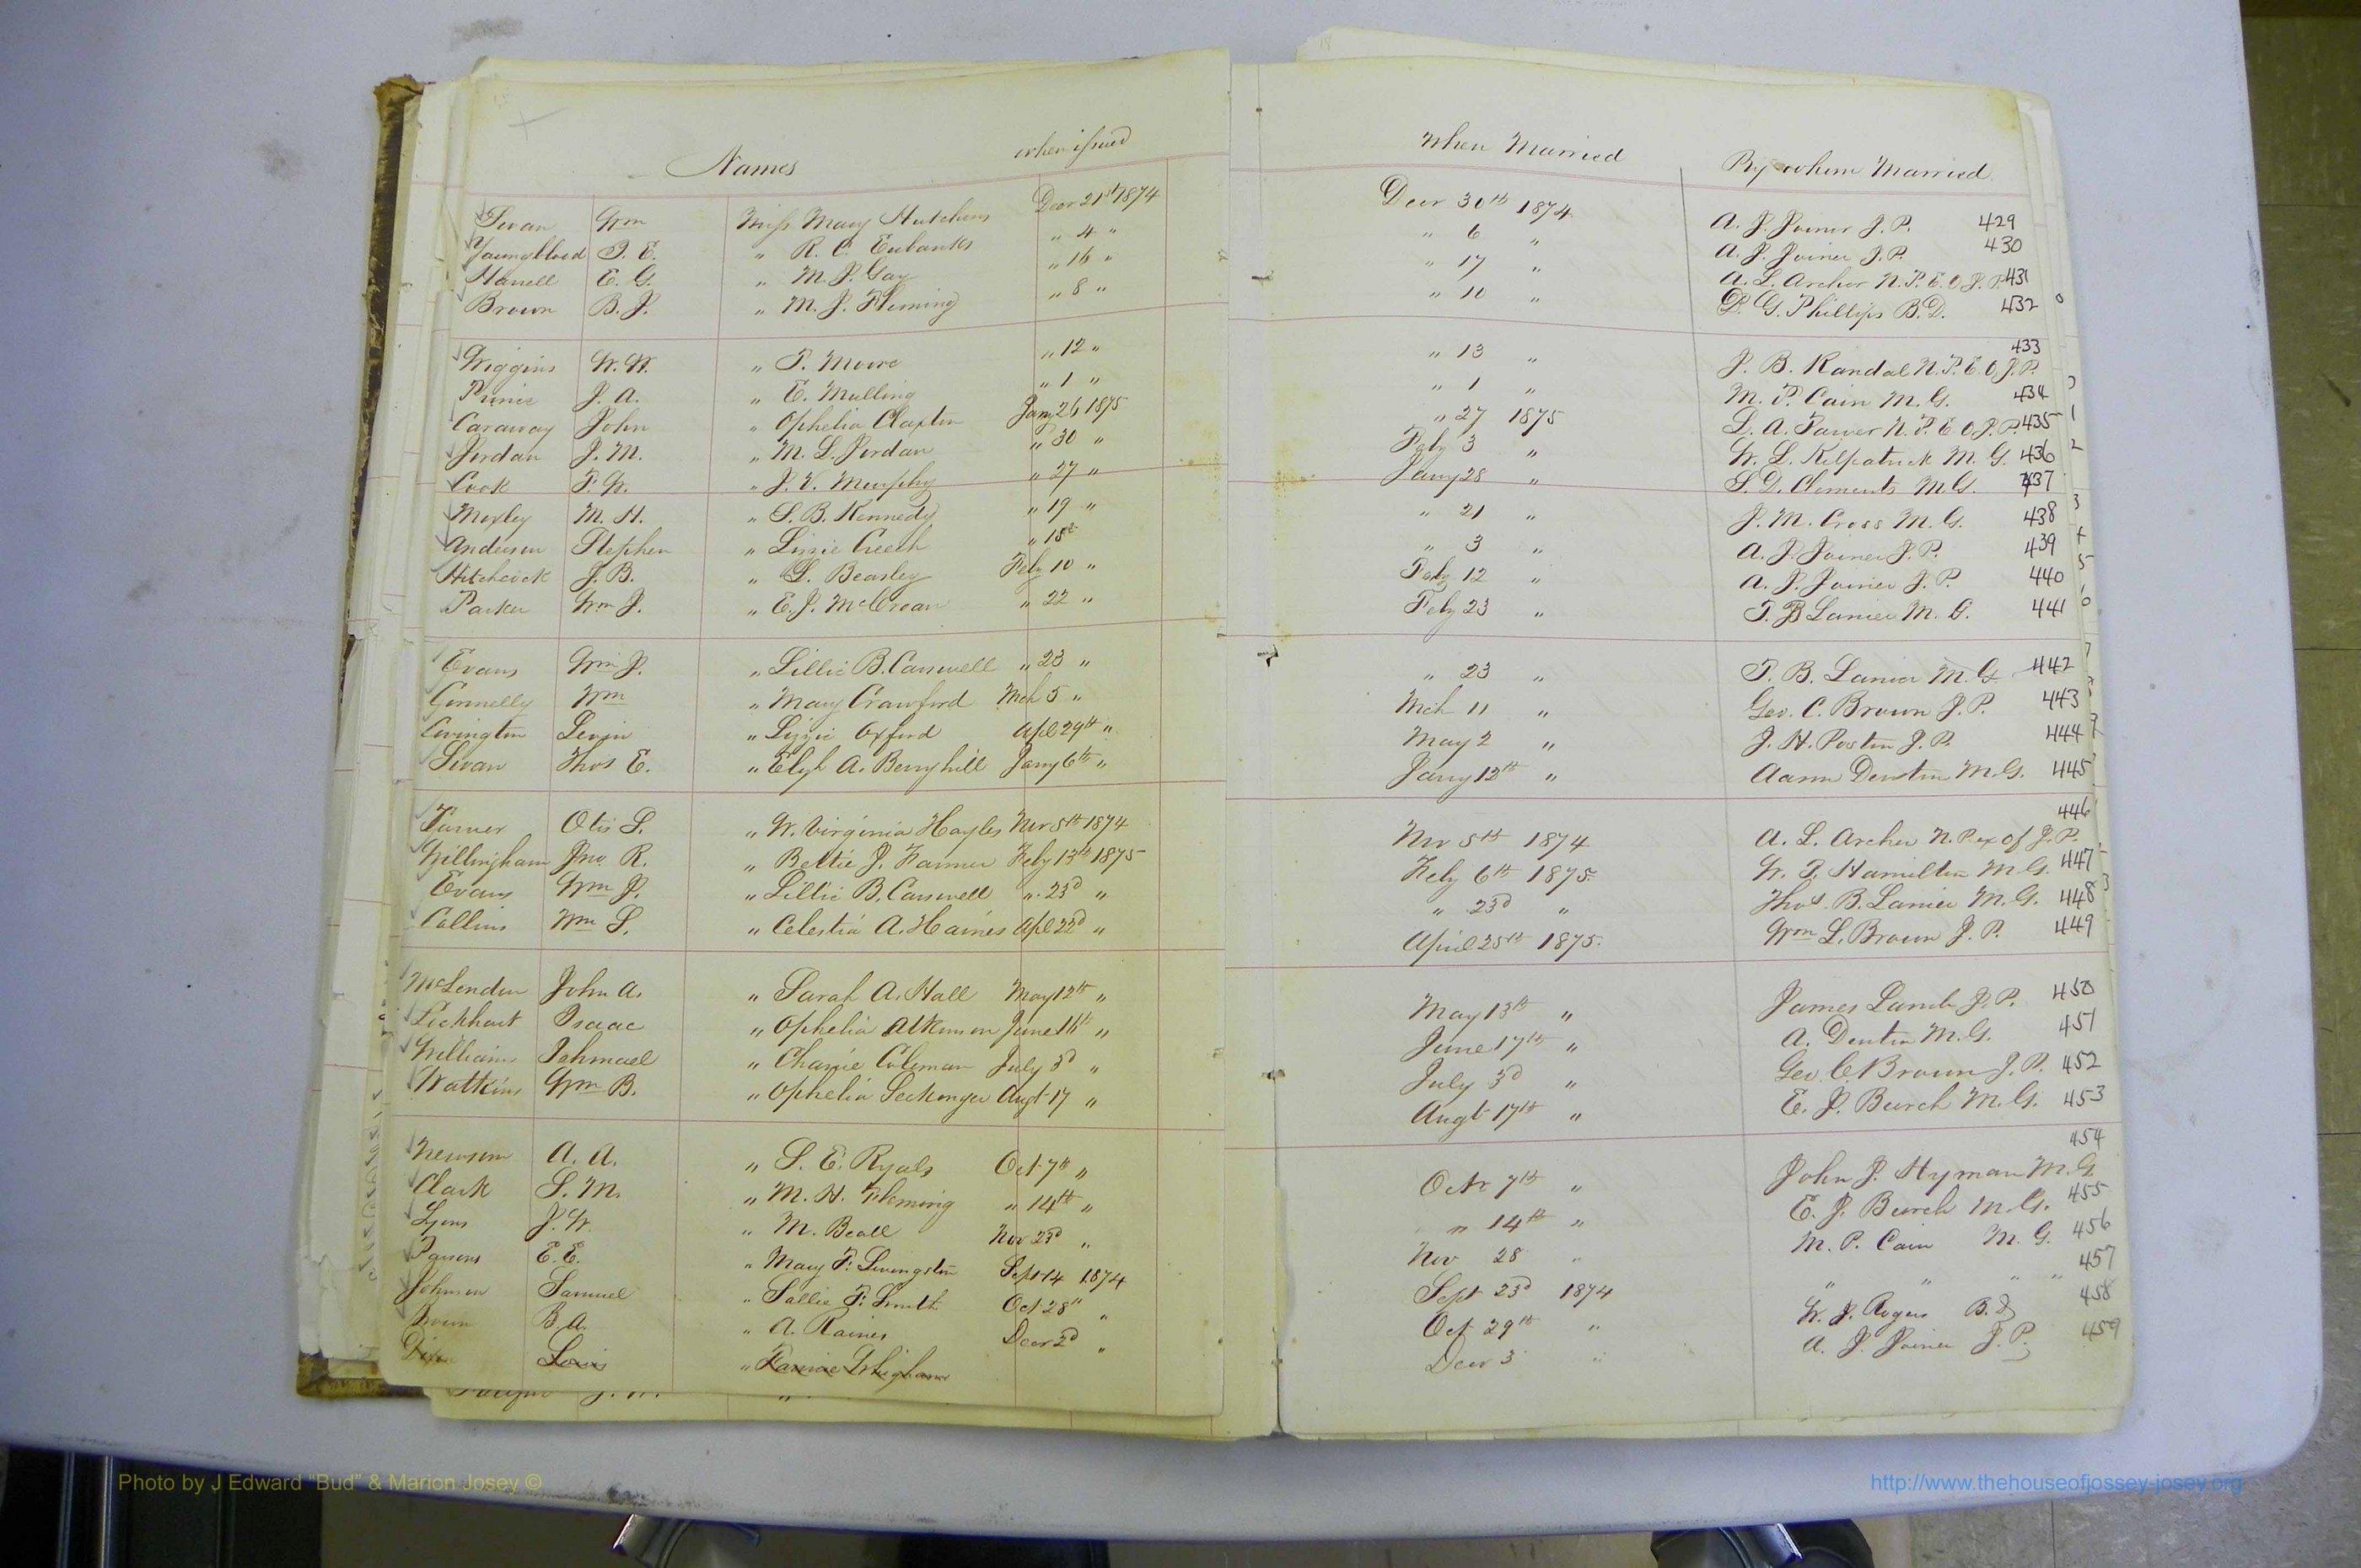 Names when issued When Married By whom Married
Swan Wm Miss Mary Hutchens Decr 21st 1874 Decr 30th 1874 A. J. Joiner J. P. 429
Youngblood T. E. " R. C. Eubanks " 4 " " 6 " A. J. Joiner J. P. 430
Harrell E. G. " M. J. Gay " 16 " " 17 " A. L. Archer N. P. E. O. J. P. 431
Brown B. J. " M. J. Fleming " 8 " " 10 " D. G. Phillips B. D. 432
Wiggins W. W. " T. Moore " 12 " " 13 " J. B. Randal N. P. E. O. J. P. 433
J. A. " E. Mulling " 1 " " 1 " M. P. Cain M. G. 434
Caraway John " Ophelia Claxton Jany 26 1875 " 27 1875 L. A. N. P. E. O. J. P. 435
Jordan J. M. " M. L. Jordan " 30 " Feby 3 " W. L. Kilpatrick M. G. 436
Cook F. W. " J. V. Murphy " 27 " Jany 28 " S. D. Clements M. G. 437
Moxley M. H. " S. B. Kennedy " 19 " " 21 " J. M. Cross M. G. 438
Anderson Stephen " Lizzie Creech " 18 " 3 " A. J. Joiner J. P. 439
Hitchcock J. B. " L. Beasley Feby 10 " Feby 12 " A. J. Joiner J. P. 440
Parker Wm J. " E. J. McCroan " 22 " Feby 23 " T. B Lanier M. G. 441
Evans Wm J. " Lillie B. Carswell " 23 " " 23 " T. B. Lanier M. G. 442
Connelly Wm " Mary Crawford Mch 5 " Mch 11 " Geo. C. Brown J. P. 443
Covington Levin " Lizzie Oxford Apl 29th " May 2 " J. H. Poston J. P. 444
Swan Thos E. " Elizh A. Berryhill Jany 6th " Jany 12th " Aaron Denton M. G. 445
Turner Otis S. " W. Virginia Hayles Nov 5th 1874 Nov 5th 1874 A. L. Archer N. P. ex of J. P. 446
Willingham Jno R. " Bettie J. Farmer Feby 13th 1875 Feby 6th 1875 W. T. Hamilton M. G. 447
Evans Wm J. " Lillie B. Carswell " 23d " " 23d " Thos. B. Lanier M. G. 448
Collins Wm S. " Celestia A. Haines Apl 22d " April 25th 1875. Wm L. Brown J. P. 449
McLendon John A. " Sarah A. Hall May 12th " May 13th " James Lamb J. P. 450
Lockhart Isaac " Ophelia Atkinson June 16th " June 17th " A. Denton M. G. 451
Williams Ishmael " Coleman July 3d " July 3d " Geo. C Brown J. P. 452
Watkins Wm B. " Ophelia Seckinger Augt 17 " Augt 17th " E. J. Burch M. G. 453
Newsom A. A. " S. E. Ryals Oct 7th " Octr 7th " John J. Hyman M. G. 454
Clark S. M. " M. H. Fleming " 14th " " 14th " E. J. Burch M. G. 455
Lyons J. W. " M. Beall Nov 23d " Nov 28 " M. P. Cain M. G. 456
Parsons E. E. " Mary F. Livingston Sept 14 1874 Sept 23d 1874 " " " " 457
Johnson Samuel " Sallie F. Smith Oct 28th " Oct 29th " W. J. Rogers B. D 458
Brown B. A. " A. Raines Decr 2d " Decr 3 " A. J. Joiner J. P. 459
Lewis " Fannie Whigham
Photo by J Edward "Bud" & Marion Josey ©
http://www.thehouseofjossey-josey.org